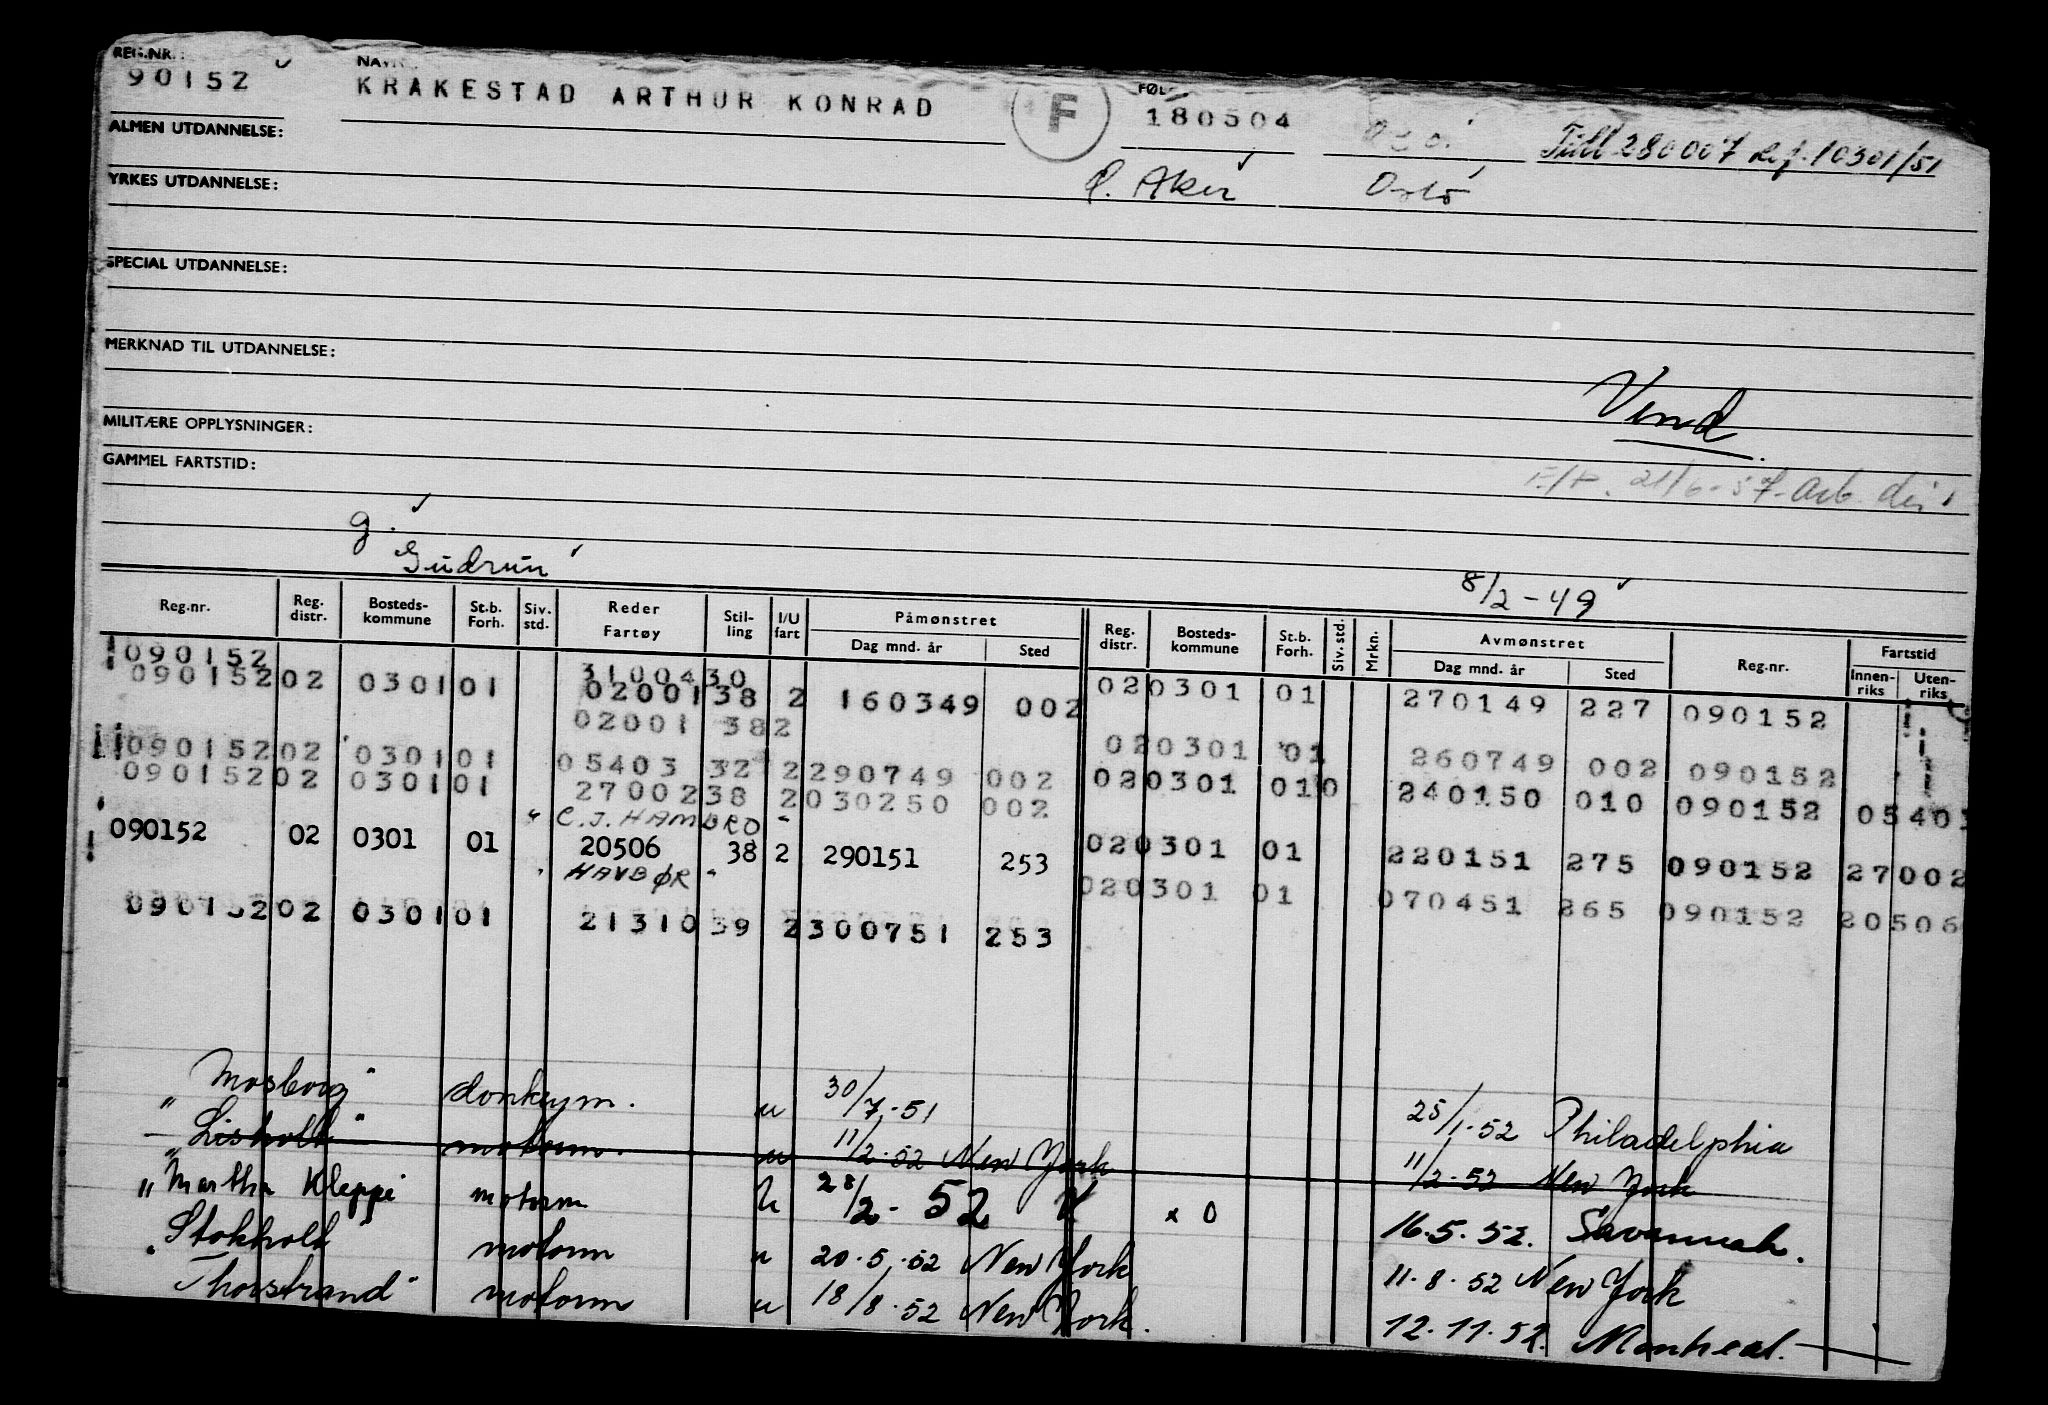 REG.NR.: NAVN
90152 KRAKESTAD ARTHUR KONRAD F 180504
ALMEN UTDANNELSE: Tidl 280007 Ref. 10301/51
Aker Oslo
YRKES UTDANNELSE:
SPECIAL UTDANNELSE:
MERKNAD TIL UTDANNELSE:
Vend
MILITÆRE OPPLYSNINGER:
GAMMEL FARTSTID:
21/6-57
g.
Gudrun 8/2-49
Reg.nr. Reg. distr. Bostedskommune St.b. Forh. Siv. std. Reder Fartøy Stilling I/U fart Påmønstret Dag mnd. år Sted Reg. distr. Bostedskommune St.b. Forh. Siv. std. Mrkn. Avmønstret Dag mnd. år Sted Reg.nr. Fartstid Innenriks Utenriks
090152 3100430
090152 02 0301 01 02001 38 2 160349 002 02 0301 01 270149 227 090152
02001 38 2
090152 02 0301 01 05403 32 2 290749 002 02 0301 01 260749 002 090152
090152 02 0301 01 27002 38 2 030250 002 02 0301 01 0 240150 010 090152 05403
" C.J. HAMBRO "
090152 02 0301 01 20506 38 2 290151 253 02 0301 01 220151 275 090152 27002
" HAVBØR "
02 0301 01 070451 265 090152 20506
090152 02 0301 01 21310 39 2 300751 253
"Mosborg" donkeym. u 30/7-51 25/1-52 Philadelphia
"Lisholt" motorm. u 11/2-52 New York 11/2-52 New York
"Martha Kleppe motorm u 28/2-52 x 0 16.5.52. Savannah.
"Stokholt motorm u 20-5-52 New York 11-8-52 New York
Thorstrand" motorm u 18/8-52 New York. 12-11-52. Montreal.